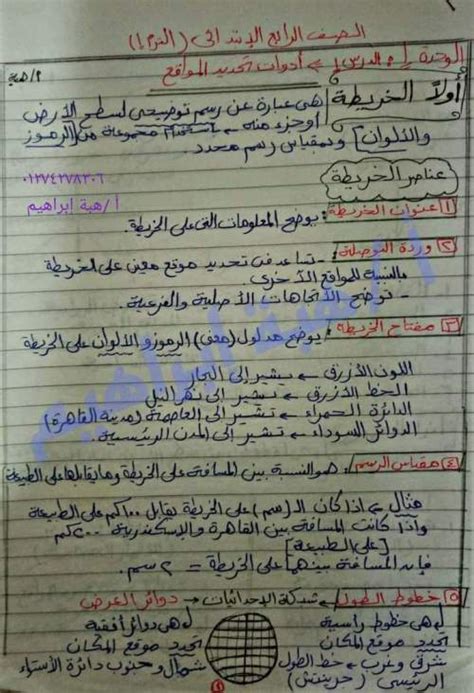 الصف الرابع الابتدائى (الترم ١)
الوحدة ١ : الدرس ١ ← أدوات تحديد المواقع
أ/هبة
أولاً الخريطة
هى عبارة عن رسم توضيحى لسطح الأرض
أو جزء منه ← باستخدام مجموعة من [الرموز
والألوان] وبمقياس رسم محدد.
عناصر الخريطة
٠١٢٧٤٢٧٨٣٠٦
أ/هبة ابراهيم
١ عنوان الخريطة: يوضح المعلومات التى على الخريطة.
٢ وردة البوصلة: - تساعد فى تحديد موقع معين على الخريطة
بالنسبة للمواقع الأخرى
- توضح الاتجاهات الأصلية والفرعية.
٣ مفتاح الخريطة: يوضح مدلول (معنى) الرموز و الألوان على الخريطة
اللون الأزرق ← يشير إلى البحار
الخط الأزرق ← يشير إلى نهر النيل
الدائرة الحمراء ← تشير إلى العاصمة (مدينة القاهرة)
الدوائر السوداء ← تشير إلى المدن الرئيسية.
٤ مقياس الرسم: هو النسبة بين المسافة على الخريطة وما يقابلها على الطبيعة
مثال ← إذا كان (١سم) على الخريطة يقابل ١٠٠كم على الطبيعة
وإذا كانت المسافة بين القاهرة والإسكندرية ٢٠٠كم
[على الطبيعة]
فإن المسافة بينهما على الخريطة = ٢ سم.
٥ خطوط الطول ← شبكة الإحداثيات → دوائر العرض
هى خطوط رأسية
تحديد موقع المكان
شرق وغرب ← خط الطول
الرئيسى (جرينتش)
هى دوائر أفقية
تحديد موقع المكان
شمال وجنوب دائرة الأستواء
١
أ/هبة ابراهيم